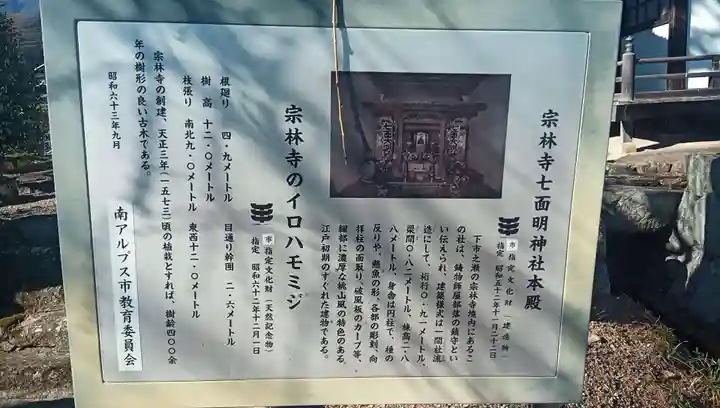 宗林寺七面明神社本殿
市指定文化財(建造物)
指定 昭和五十二年十一月二十二日
下市之瀬の宗林寺境内にあるこ
の社は、鋳物師屋部落の鎮守とい
い伝えられ、建築様式は一間社流
造にして、桁行〇・九一メートル、
梁間〇・八二メートル、棟高二・八
八メートル、身舎は円柱で、棰の
反りや、懸魚の形、各部の彫刻、向
拝柱の面取り、破風板のカーブ等、
細部に濃厚な桃山風の特色のある
江戸初期のすぐれた建物である。
宗林寺のイロハモミジ
市指定文化財(天然記念物)
指定 昭和六十二年十二月一日
根廻り 四・九メートル 目通り幹囲 二・六メートル
樹 高 十二・〇メートル
枝張り 南北九・〇メートル 東西十二・〇メートル
宗林寺の創建、天正三年(一五七三)頃の植栽とすれば、樹齢四〇〇余
年の樹形の良い古木である。
昭和六十三年九月
南アルプス市教育委員会